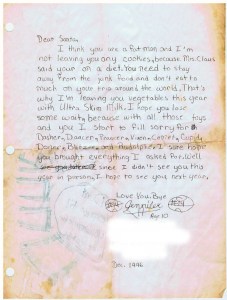 Dear Santa,
I think you are a fat man and I'm
not leaving you any cookies, because Mrs. Claus
said your on a diet. You need to stay
away from the junk food and don't eat to
much on your trip around the world. That's
why I'm leaving you vegetables this year
with Ultra Skim Milk. I hope you lose
some wait, because with all those toys
and you I start to fill sorry for
Dasher, Dancer, Prancer, Vixen, Comet, Cupid,
Donner, Blitzen, and Rudolph. I sure hope
you brought everything I asked for. Well
since I didn't see you this
year in person, I hope to see you next year.
Love You, Bye
Jennifer
Age 10
Dec. 1996